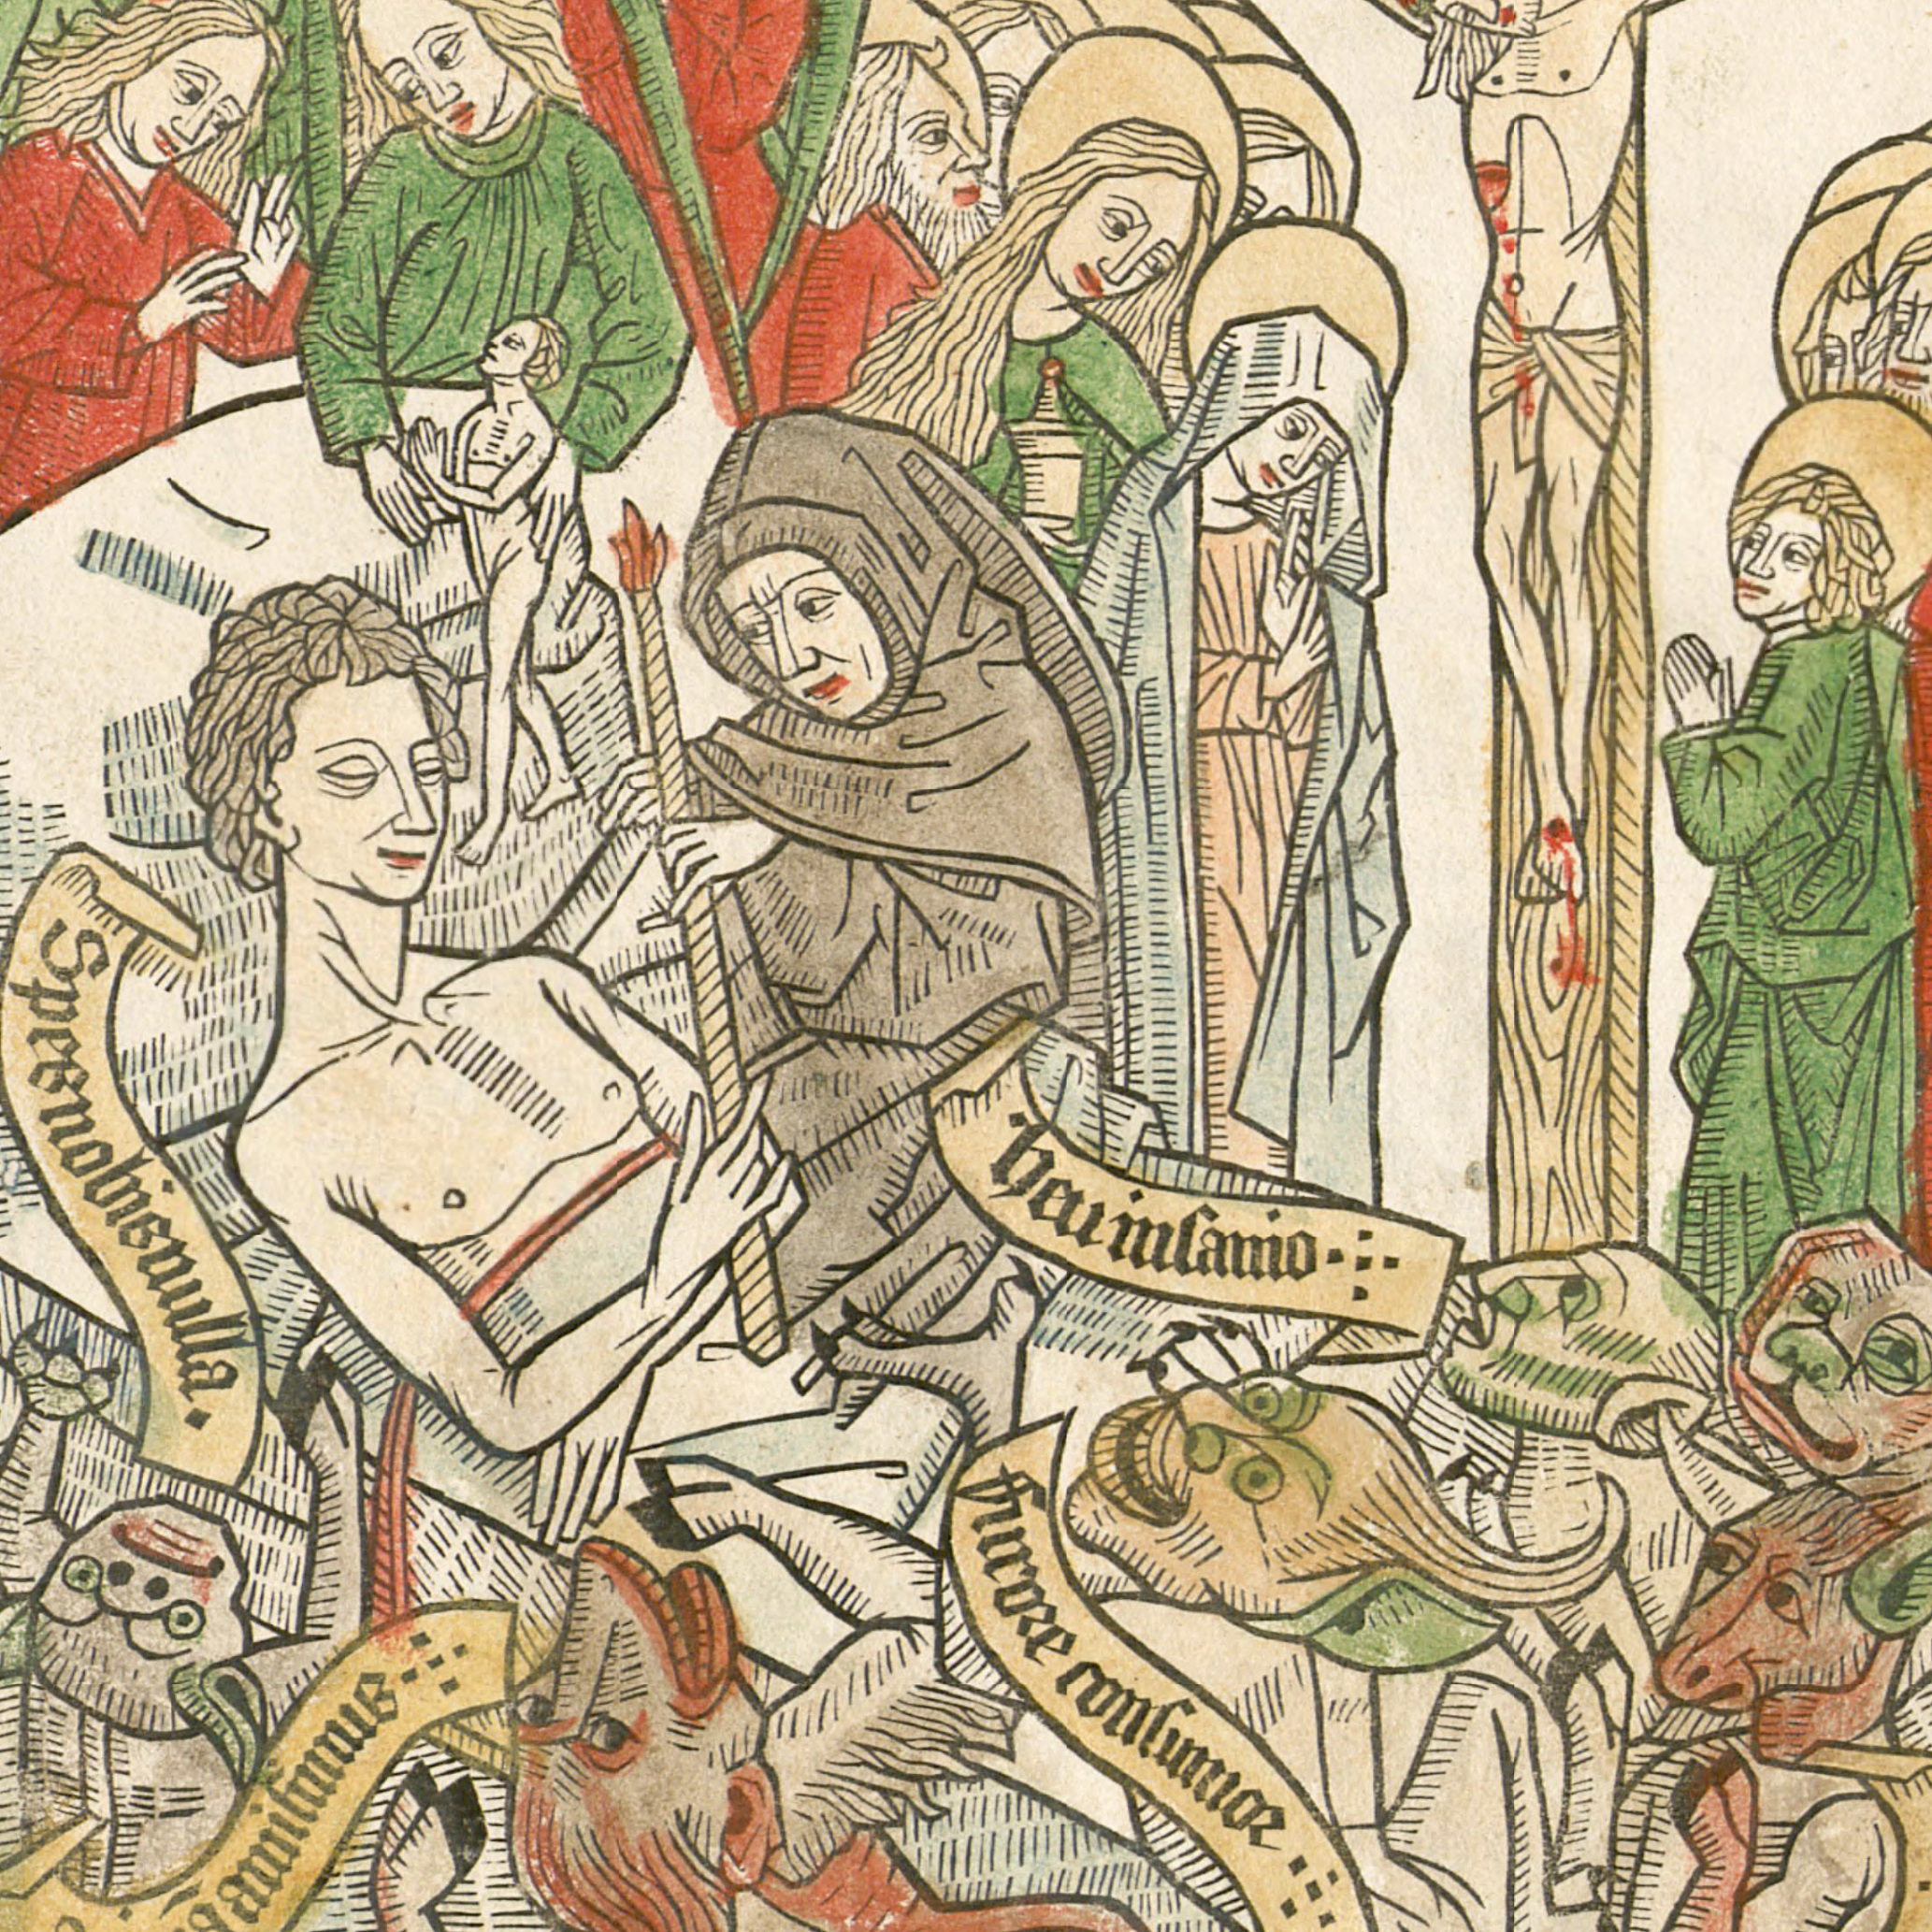 Spes nobis nulla.
heu insanio
furore consumor
animam amisimus